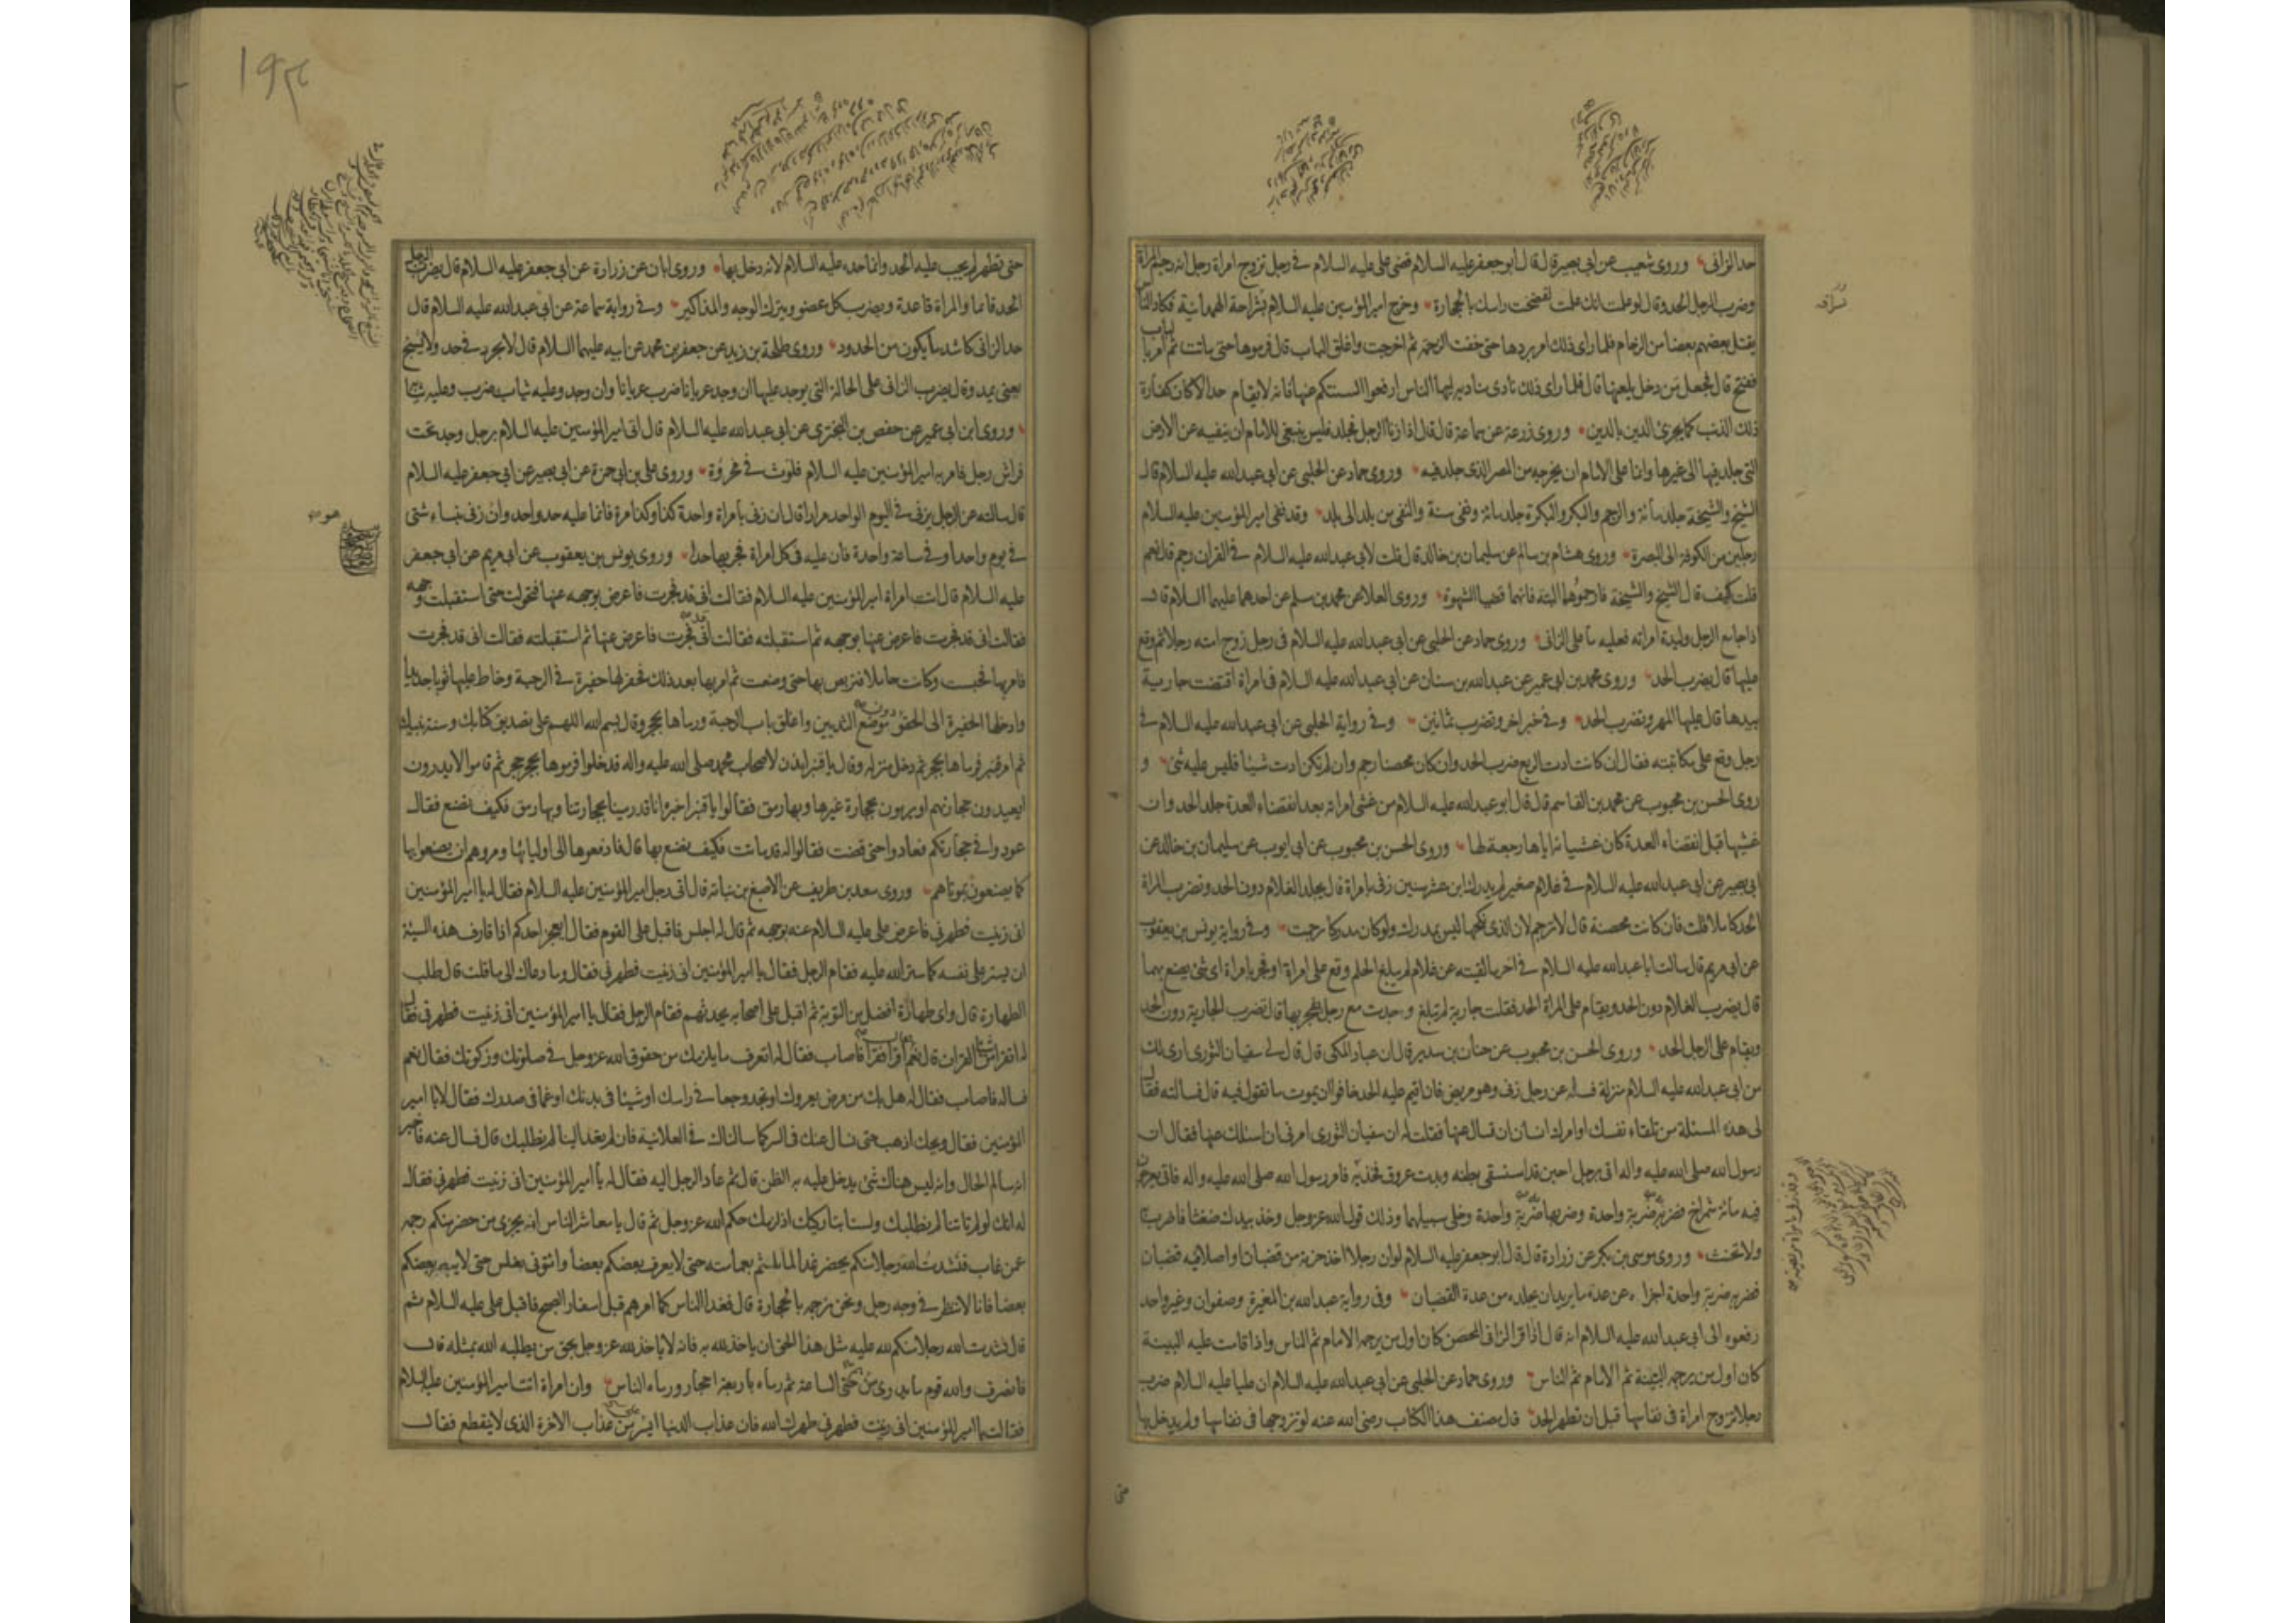 حد الزانى وروى شعيب عن ابى بصير قال قال ابو جعفر عليه السلام قضى على عليه السلام فى رجل تزوج امراة رجل انه رجم المراة
وضرب الرجل الحد وقال لو علمت انك علمت لفضخت راسك بالحجارة وخرج امير المؤمنين عليه السلام بشراحة الهمدانية فكاد الناس
يقتل بعضهم بعضا من الزحام فلما راى ذلك امر بردها حتى خفت الزحمة ثم اخرجت واغلق الباب قال فرموها حتى ماتت ثم امر بالباب
ففتح قال فجعل من دخل يلعنها قال فلما راى ذلك نادى مناديه ايها الناس ارفعوا السنتكم عنها فانه لا يقام حد الا كان كفارة
ذلك الذنب كما يجزى الدين بالدين وروى زرعة عن سماعة قال قال اذا زنا الرجل فجلد فليس ينبغى للامام ان ينفيه عن الارض
التى جلد فيها الى غيرها وانما على الامام ان يخرجه من المصر الذى جلد فيه وروى حماد عن الحلبى عن ابى عبد الله عليه السلام قال
الشيخ والشيخة جلد مائة والرجم والبكر والبكرة جلد مائة ونفى سنة والنفى من بلد الى بلد وقد نفى امير المؤمنين عليه السلام
رجلين من الكوفة الى البصرة وروى هشام بن سالم عن سليمان بن خالد قال قلت لابى عبد الله عليه السلام فى القران رجم قال نعم
قلت كيف قال الشيخ والشيخة فارجموهما البتة فانهما قضيا الشهوة وروى العلا عن محمد بن مسلم عن احدهما عليهما السلام قال
اذا جامع الرجل وليدة امراته فعليه ما على الزانى وروى حماد عن الحلبى عن ابى عبد الله عليه السلام فى رجل زوج امته رجلا ثم وقع
عليها قال يضرب الحد وروى محمد بن ابى عمير عن عبد الله بن سنان عن ابى عبد الله عليه السلام فى امراة اقتضت جارية
بيدها قال عليها المهر وتضرب الحد وفى خبر اخر وتضرب ثمانين وفى رواية الحلبى عن ابى عبد الله عليه السلام فى
رجل وقع على مكاتبته فقال ان كانت ادت الربع ضرب الحد وان كان محصنا رجم وان لم تكن ادت شيئا فليس عليه شئ و
روى الحسن بن محبوب عن محمد بن القاسم قال قال ابو عبد الله عليه السلام من غشى امراته بعد انقضاء العدة جلد الحد وان
غشيها قبل انقضاء العدة كان غشيانه اياها رجعة لها وروى الحسن بن محبوب عن ابى ايوب عن سليمان بن خالد عن
ابى بصير عن ابى عبد الله عليه السلام فى غلام صغير لم يدرك ابن عشر سنين زنى بامراة قال يجلد الغلام دون الحد وتضرب المراة
الحد كاملا قلت فان كانت محصنة قال لا ترجم لان الذى نكحها ليس بمدرك ولو كان مدركا رجمت وفى رواية يونس بن يعقوب
عن ابى مريم قال سالت ابا عبد الله عليه السلام فى اخر ما لقيته عن غلام لم يبلغ الحلم وقع على امراة او فجر بامراة اى شئ يصنع بهما
قال يضرب الغلام دون الحد ويقام على المراة الحد فقلت جارية لم تبلغ وجدت مع رجل يفجر بها قال تضرب الجارية دون الحد
ويقام على الرجل الحد وروى الحسن بن محبوب عن حنان بن سدير قال ان عباد المكى قال قال لى سفيان الثورى ارى لك
من ابى عبد الله عليه السلام منزلة فسله عن رجل زنى وهو مريض فان اقيم عليه الحد خافوا ان يموت ما تقول فيه قال فسالته فقال
لى هذه المسئلة من تلقاء نفسك او امرك انسان ان تسال عنها فقلت له ان سفيان الثورى امرنى ان اسئلك عنها فقال ان
رسول الله صلى الله عليه واله اتى برجل احبن قد استسقى بطنه وبدت عروق فخذيه فامر رسول الله صلى الله عليه واله فاتى بعرجون
فيه مائة شمراخ فضربه ضربة واحدة وضربها ضربة واحدة وخلى سبيلهما وذلك قول الله عز وجل وخذ بيدك ضغثا فاضرب به
ولا تحنث وروى موسى بن بكر عن زرارة قال قال ابو جعفر عليه السلام لو ان رجلا اخذ حزمة من قضبان او اصلا فيه قضبان
فضربه ضربة واحدة اجزاه عن عدة ما يريد ان يجلده من عدة القضبان وفى رواية عبد الله بن المغيرة وصفوان وغير واحد
رفعوه الى ابى عبد الله عليه السلام انه قال اذا اقر الزانى المحصن كان اول من يرجمه الامام ثم الناس واذا قامت عليه البينة
كان اول من يرجمه البينة ثم الامام ثم الناس وروى حماد عن الحلبى عن ابى عبد الله عليه السلام ان عليا عليه السلام ضرب
رجلا تزوج امراة فى نفاسها قبل ان تطهر الحد قال مصنف هذا الكتاب رضى الله عنه لو تزوجها فى نفاسها ولم يدخل بها
حتى تطهر لم يجب عليه الحد وانما حده عليه السلام لانه دخل بها وروى ابان عن زرارة عن ابى جعفر عليه السلام قال يضرب الرجل
الحد قائما والمراة قاعدة ويضرب كل عضو ويترك الوجه والمذاكير وفى رواية سماعة عن ابى عبد الله عليه السلام قال
حد الزانى كاشد ما يكون من الحدود وروى طلحة بن زيد عن جعفر بن محمد عن ابيه عليهما السلام قال لا يجرد فى حد ولا يشبح
يعنى يمد وقال يضرب الزانى على الحالة التى يوجد عليها ان وجد عريانا ضرب عريانا وان وجد وعليه ثياب ضرب وعليه ثيابه
وروى ابن ابى عمير عن حفص بن البخترى عن ابى عبد الله عليه السلام قال اتى امير المؤمنين عليه السلام برجل وجد تحت
فراش رجل فامر به امير المؤمنين عليه السلام فلوث فى مخرؤة وروى على بن ابى حمزة عن ابى بصير عن ابى جعفر عليه السلام
قال سالته عن الرجل يزنى فى اليوم الواحد مرارا قال ان زنى بامراة واحدة كذا وكذا مرة فانما عليه حد واحد وان زنى بنساء شتى
فى يوم واحد او فى ساعة واحدة فان عليه فى كل امراة فجر بها حدا وروى يونس بن يعقوب عن ابى مريم عن ابى جعفر
عليه السلام قال اتت امراة امير المؤمنين عليه السلام فقالت انى قد فجرت فاعرض بوجهه عنها فتحولت حتى استقبلت وجهه
فقالت انى قد فجرت فاعرض عنها بوجهه ثم استقبلته فقالت انى قد فجرت فاعرض عنها ثم استقبلته فقالت انى قد فجرت
فامر بها فحبست وكانت حاملا فتربص بها حتى وضعت ثم امر بها بعد ذلك فحفر لها حفيرة فى الرحبة وخاط عليها ثوبا جديدا
وادخلها الحفيرة الى الحقو دون موضع الثديين واغلق باب الرحبة ورماها بحجر وقال بسم الله اللهم على تصديق كتابك وسنة نبيك
ثم امر قنبر فرماها بحجر ثم دخل منزله وقال يا قنبر ايذن لاصحاب محمد صلى الله عليه واله فدخلوا فرموها بحجر حجر ثم قاموا لا يدرون
ايعيدون حجارتهم او يرمون بحجارة غيرها وبها رمق فقالوا يا قنبر اخبره انا قد رمينا بحجارتنا وبها رمق فكيف نصنع فقال
عودوا فى حجارتكم فعادوا حتى قضت فقالوا له قد ماتت فكيف نصنع بها قال فادفعوها الى اوليائها ومروهم ان يصنعوا بها
كما يصنعون بموتاهم وروى سعد بن طريف عن الاصبغ بن نباتة قال اتى رجل امير المؤمنين عليه السلام فقال له يا امير المؤمنين
انى زنيت فطهرنى فاعرض على عليه السلام عنه بوجهه ثم قال له اجلس فاقبل على القوم فقال ايعجز احدكم اذا قارف هذه السيئة
ان يستر على نفسه كما ستر الله عليه فقام الرجل فقال يا امير المؤمنين انى زنيت فطهرنى فقال وما دعاك الى ما قلت قال طلب
الطهارة قال واى طهارة افضل من التوبة ثم اقبل على اصحابه يحدثهم فقام الرجل فقال يا امير المؤمنين انى زنيت فطهرنى فقال
له اتقرا شيئا من القران قال نعم قال اقرا فقرا فاصاب فقال له اتعرف ما يلزمك من حقوق الله عز وجل فى صلوتك وزكوتك فقال نعم
فساله فاصاب فقال له هل بك من مرض يعروك او تجد وجعا فى راسك او شيئا فى بدنك او غما فى صدرك فقال لا يا امير
المؤمنين فقال ويحك اذهب حتى نسال عنك فى السر كما سالناك فى العلانية فان لم تعد الينا لم نطلبك قال فسال عنه فاخبر
انه سالم الحال وانه ليس هناك شئ يدخل عليه به الظن قال ثم عاد الرجل اليه فقال له يا امير المؤمنين انى زنيت فطهرنى فقال
له انك لو لم تاتنا لم نطلبك ولسنا بتاركيك اذ لزمك حكم الله عز وجل ثم قال يا معاشر الناس انه يجزى من حضر منكم رجمه
عمن غاب فنشدت الله رجلا منكم يحضر غدا لما تلثم بعمامته حتى لا يعرف بعضكم بعضا واتونى بغلس حتى لا يبصر بعضكم
بعضا فانا لا ننظر فى وجه رجل ونحن نرجمه بالحجارة قال فغدا الناس كما امرهم قبل اسفار الصبح فاقبل على عليه السلام ثم
قال نشدت الله رجلا منكم لله عليه مثل هذا الحق ان ياخذ لله به فانه لا ياخذ لله عز وجل بحق من يطلبه الله بمثله قال
فانصرف والله قوم ما يدرى من هم حتى الساعة ثم رماه باربعة احجار ورماه الناس وان امراة اتت امير المؤمنين عليه السلام
فقالت يا امير المؤمنين انى زنيت فطهرنى طهرك الله فان عذاب الدنيا ايسر من عذاب الاخرة الذى لا ينقطع فقال